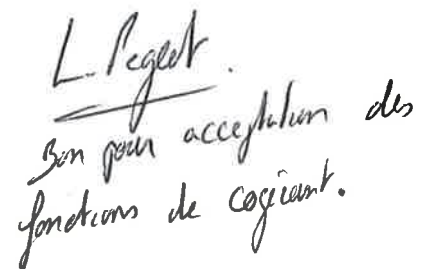 L. Peglet.
Bon pour acceptation des
fonctions de cogérant.